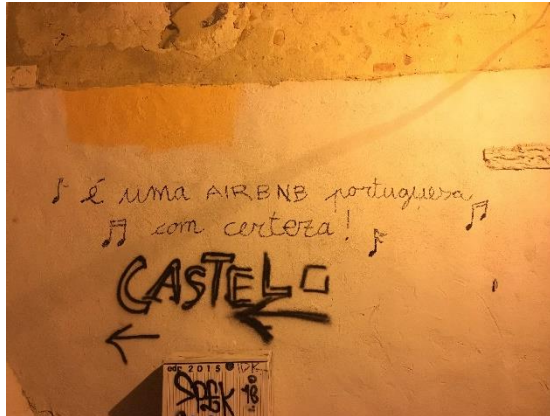 é uma AIRBNB portuguesa
com certeza!
CASTELO
2015
18